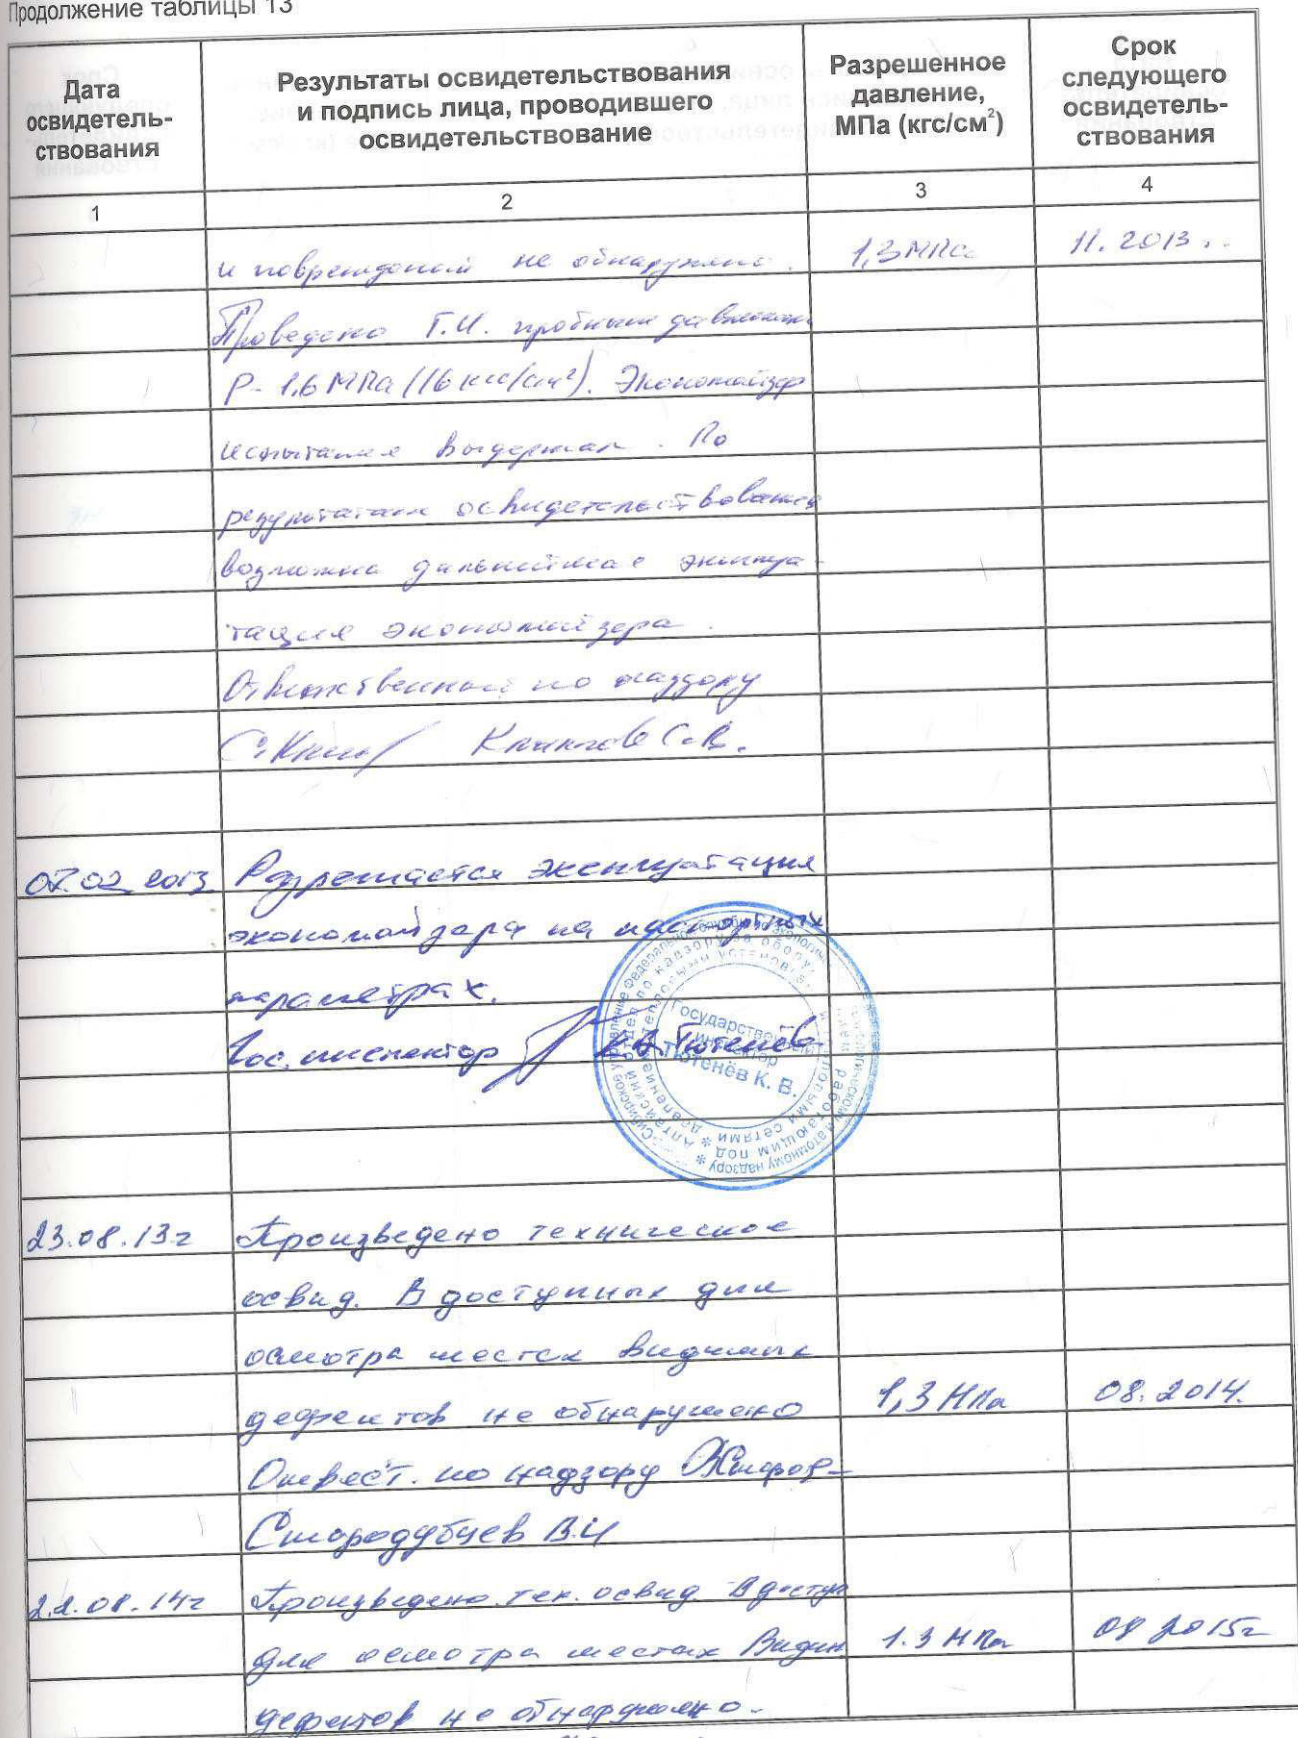 Продолжение таблицы 13
Дата освидетель-ствования
Результаты освидетельствования и подпись лица, проводившего освидетельствование
Разрешенное давление, МПа (кгс/см²)
Срок следующего освидетель-ствования
1 2 3 4
и повреждений не обнаружено. 1,3 МПа 11.2013г.
Проведено Г.И. пробным давлением
Р-1,6 МПа (16 кгс/см²). Экономайзер
испытания выдержал. По
результатам освидетельствования
возможна дальнейшая эксплуа-
тация экономайзера.
Ответственный по надзору
С.В.
07.02.2013 Разрешается эксплуатация
экономайзера на паспортных
параметрах.
Гос. инспектор К.В. Тютенёв
Государственный
инспектор
Тютенёв К. В.
23.08.13г Произведено техническое
освид. В доступных для
осмотра местах видимых
дефектов не обнаружено 1,3 МПа 08.2014.
Ответст. по надзору
Стародубцев В.И
22.08.14г Произведено тех. освид. В доступ
для осмотра местах Видим 1.3 МПа 08 2015г
дефектов не обнаружено.